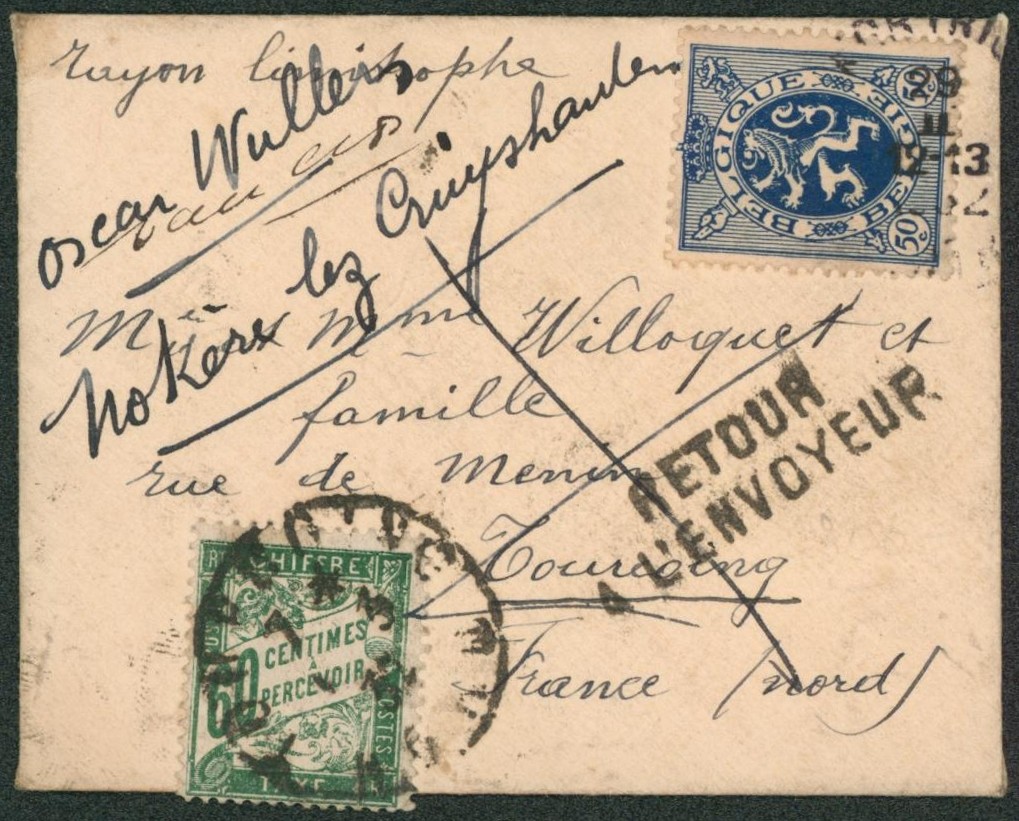 Rayon limitrophe
Oscar Wullens
Nokere lez Cruyshautem
Mr & Mme Willoquet et
famille
rue de Menin
Tourcoing
France (nord)
RETOUR
A L'ENVOYEUR
BELGIQUE
BELGIE
50c
50c
28
II
12-13
32
CHIFFRE
60
CENTIMES
À
PERCEVOIR
POSTES
TAXE